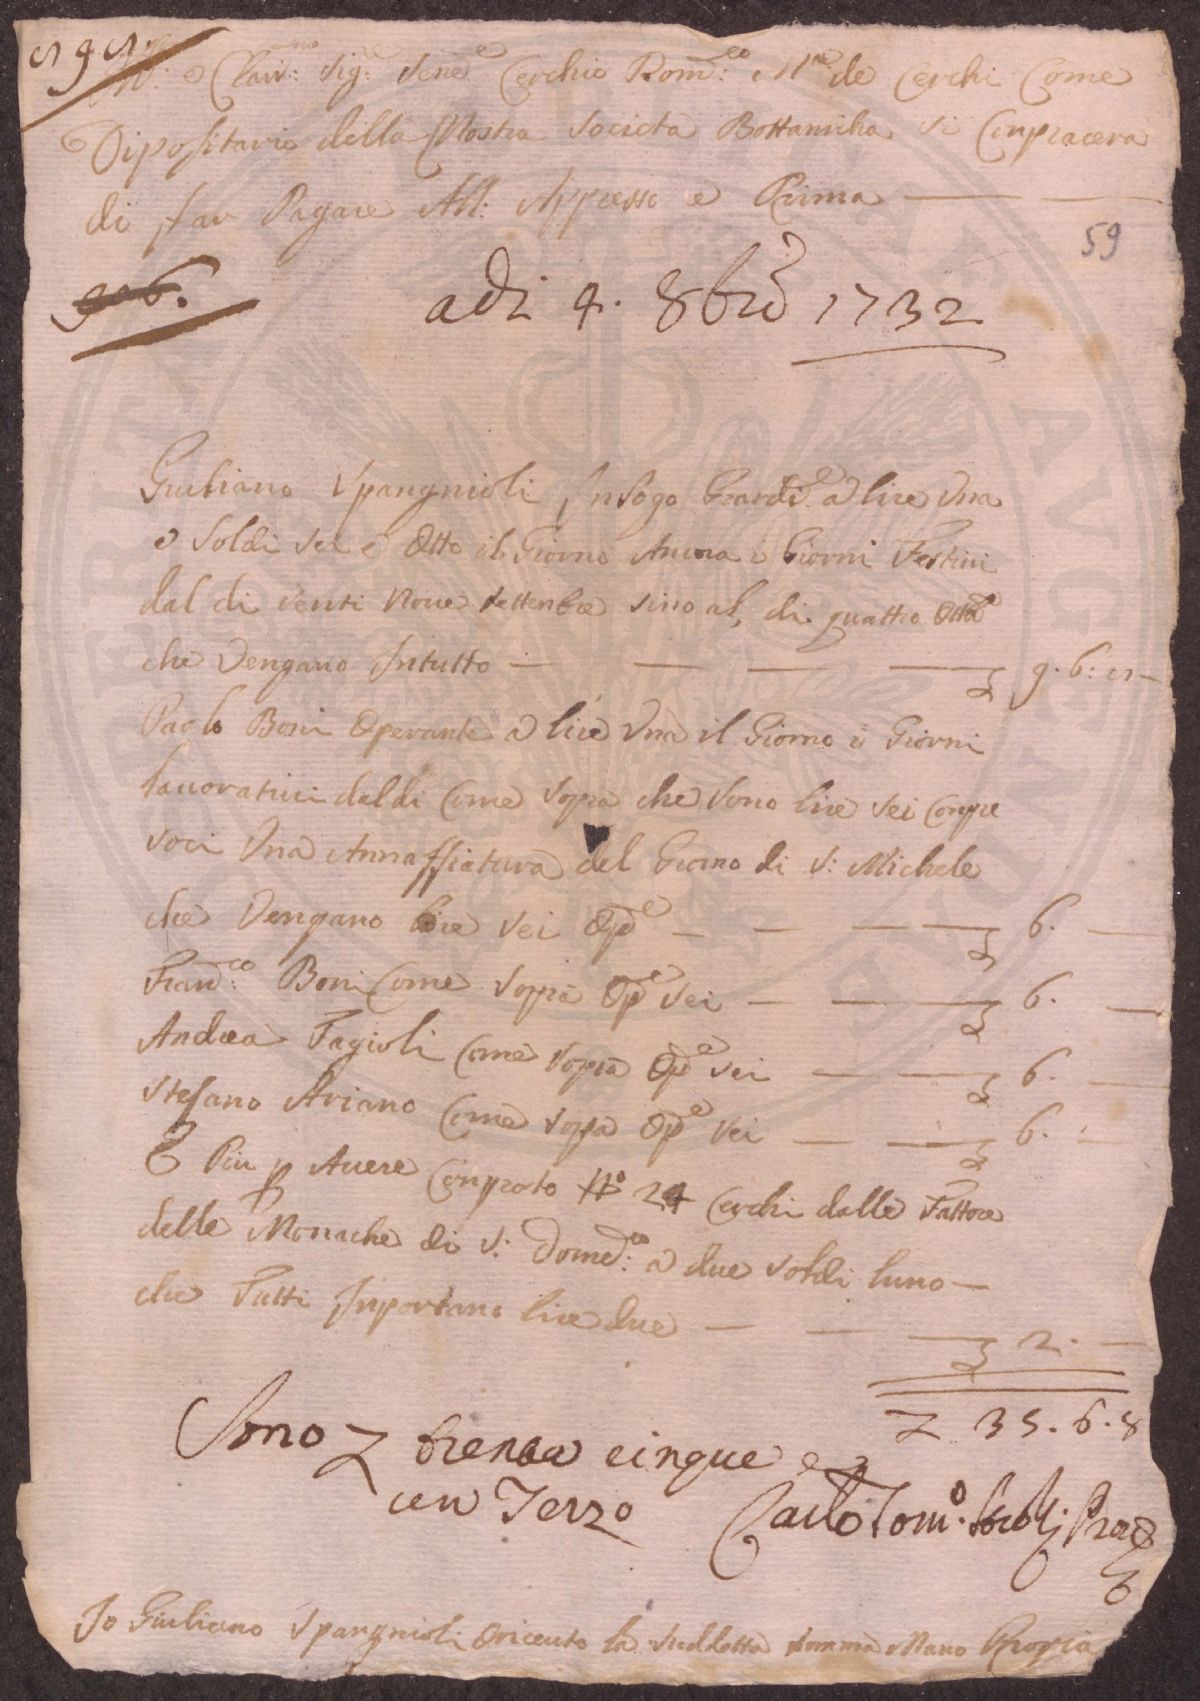 e Clari:mo Sig:e Sene:e Cerchio Rom:co de Cerchi Come
Dipositario della Nostra Societa Bottanicha si Conpiacera
di far Pagare All: Appresso e Prima
59
906.
adi 4. 8bre 1732
Giuliano Spangnioli In logo Giardi:e a lire Una
e Soldi Sei e Otto il Giorno Ancora i Giorni Festiui
dal di venti Noue Settenbre sino al, di quattro Ottb:e
che Vengano Intutto 9. 6: 8
Paolo Boni Operante a lire Una il Giorno i Giorni
lauoratiui dal di Come Sopra che Sono lire Sei Conpre
soci Una Annaffiatura del Giorno di S: Michele
che Vengano lire Sei Op:e 6.
Fran:co Boni Come Sopra Op:e Sei 6.
Andrea Fagioli Come Sopra Op:e Sei 6.
Stefano Ariano Come Sopra Op:e Sei 6.
E Piu p Auere Conprato No 24 Cerchi dalle Fattore
delle Monache di S: Dome:co a due Soldi luno
che Tutti Inportano lire due 2.
35. 6. 8
Sono trenta cinque e
un Terzo
Carlo Tom:o
Io Giuliano Spangnioli O riceuto la Suddetta Somma Mano Propia